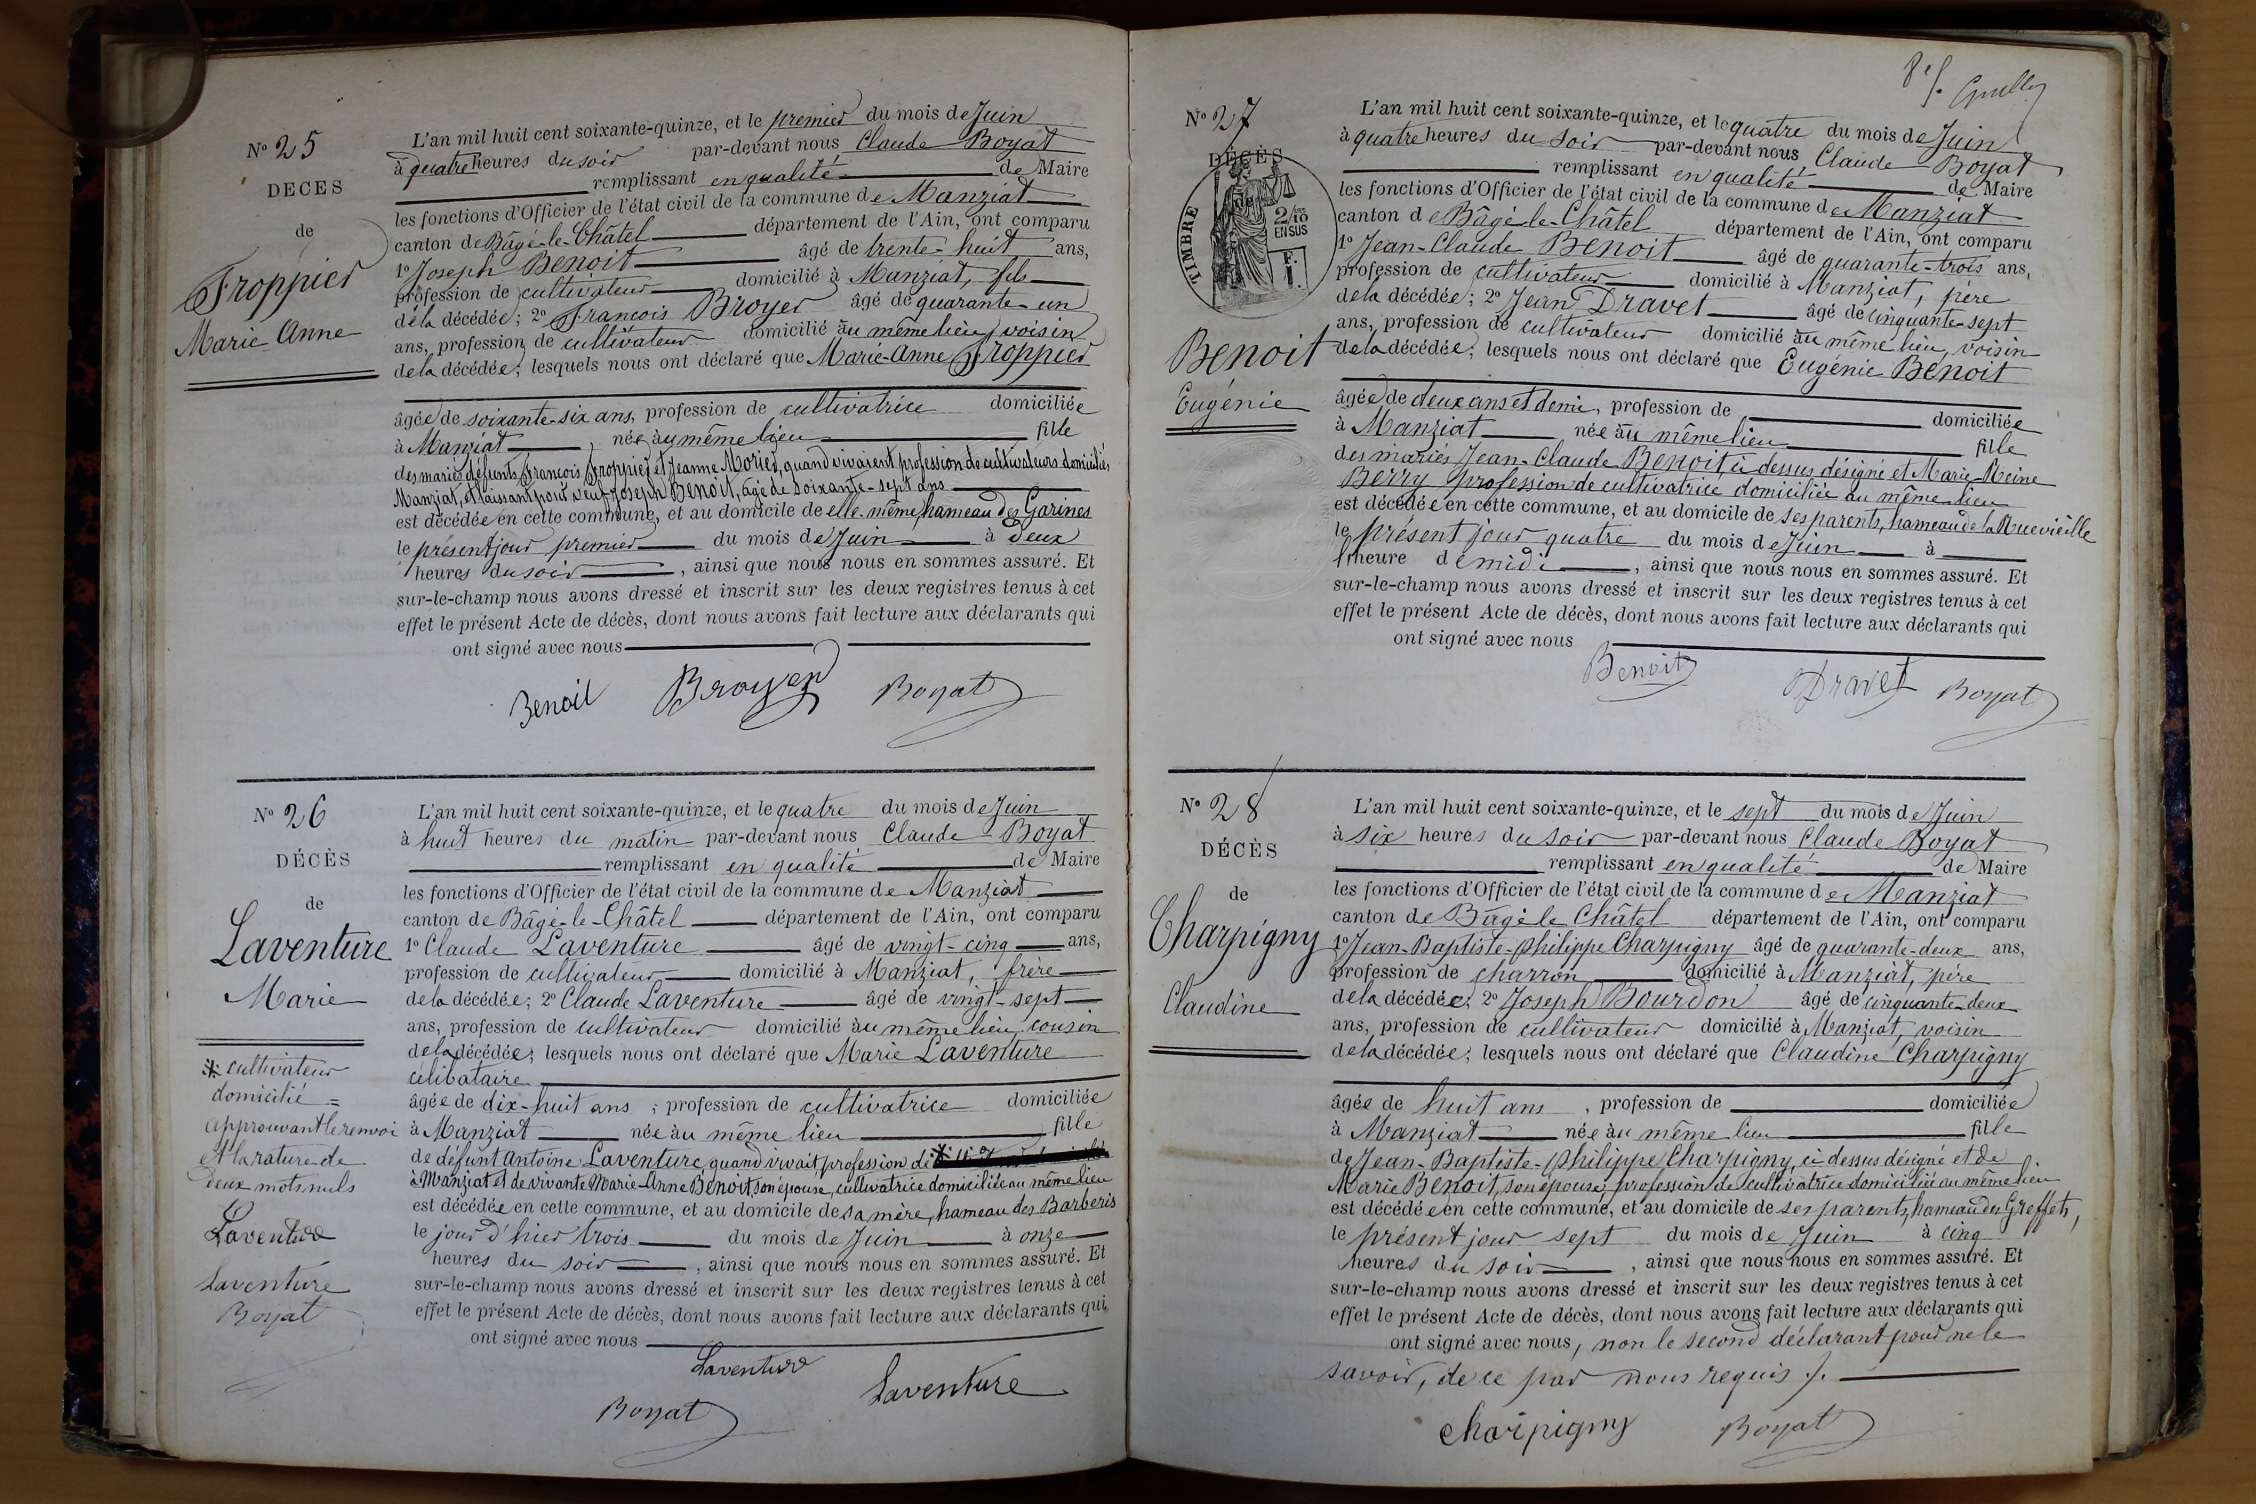 Nº 25
DECES
de
Froppier
Marie-Anne
L'an mil huit cent soixante-quinze, et le premier du mois de Juin
à quatre heures du soir par-devant nous Claude Boyat
remplissant en qualité de Maire
les fonctions d'Officier de l'état civil de la commune de Manziat
canton de Bâgé-le-Châtel département de l'Ain, ont comparu
1º Joseph Benoit âgé de trente-huit ans,
profession de cultivateur domicilié à Manziat, fils
de la décédée; 2º François Broyer âgé de quarante-un
ans, profession de cultivateur domicilié au même lieu, voisin
de la décédée; lesquels nous ont déclaré que Marie-Anne Froppier
âgée de soixante-six ans, profession de cultivatrice domiciliée
à Manziat, née au même lieu fille
des mariés défunts François Froppier et Jeanne Morier, quand vivaient profession de cultivateurs domiciliés
Manziat, et laissant pour veuf Joseph Benoit, âgé de soixante-sept ans
est décédée en cette commune, et au domicile de elle-même, hameau des Garines
le présent jour premier du mois de Juin à deux
heures du soir, ainsi que nous nous en sommes assuré. Et
sur-le-champ nous avons dressé et inscrit sur les deux registres tenus à cet
effet le présent Acte de décès, dont nous avons fait lecture aux déclarants qui
ont signé avec nous
Benoit Broyer Boyat
Nº 26
DÉCÈS
de
Laventure
Marie
* cultivateur
domicilié =
approuvant le renvoi
et la rature de
deux mots nuls
Laventure
Laventure
Boyat
L'an mil huit cent soixante-quinze, et le quatre du mois de Juin
à huit heures du matin par-devant nous Claude Boyat
remplissant en qualité de Maire
les fonctions d'Officier de l'état civil de la commune de Manziat
canton de Bâgé-le-Châtel département de l'Ain, ont comparu
1º Claude Laventure âgé de vingt-cinq ans,
profession de cultivateur domicilié à Manziat, frère
de la décédée; 2º Claude Laventure âgé de vingt-sept
ans, profession de cultivateur domicilié au même lieu, cousin
de la décédée; lesquels nous ont déclaré que Marie Laventure
célibataire
âgée de dix-huit ans, profession de cultivatrice domiciliée
à Manziat née au même lieu fille
de défunt Antoine Laventure, quand vivait profession de *
à Manziat et de vivante Marie-Anne Benoit, son épouse, cultivatrice domiciliée au même lieu
est décédée en cette commune, et au domicile de sa mère, hameau des Barberis
le jour d'hier trois du mois de Juin à onze
heures du soir, ainsi que nous nous en sommes assuré. Et
sur-le-champ nous avons dressé et inscrit sur les deux registres tenus à cet
effet le présent Acte de décès, dont nous avons fait lecture aux déclarants qui
ont signé avec nous
Laventure
Boyat Laventure
8e f.
Nº 27
DÉCÈS
de
TIMBRE
2/10
EN SUS
F.
1.
Benoit
Eugénie
L'an mil huit cent soixante-quinze, et le quatre du mois de Juin
à quatre heures du soir par-devant nous Claude Boyat
remplissant en qualité de Maire
les fonctions d'Officier de l'état civil de la commune de Manziat
canton de Bâgé-le-Châtel département de l'Ain, ont comparu
1º Jean-Claude Benoit âgé de quarante-trois ans,
profession de cultivateur domicilié à Manziat, père
de la décédée; 2º Jean Dravet âgé de cinquante-sept
ans, profession de cultivateur domicilié au même lieu, voisin
de la décédée; lesquels nous ont déclaré que Eugénie Benoit
âgée de deux ans et demi, profession de domiciliée
à Manziat née au même lieu fille
des mariés Jean-Claude Benoit ci-dessus désigné et Marie-Reine
Berry profession de cultivatrice domiciliée au même lieu
est décédée en cette commune, et au domicile de ses parents, hameau de la Ruevieille
le présent jour quatre du mois de Juin à
l'heure de midi, ainsi que nous nous en sommes assuré. Et
sur-le-champ nous avons dressé et inscrit sur les deux registres tenus à cet
effet le présent Acte de décès, dont nous avons fait lecture aux déclarants qui
ont signé avec nous
Benoit Dravet Boyat
Nº 28
DÉCÈS
de
Charpigny
Claudine
L'an mil huit cent soixante-quinze, et le sept du mois de Juin
à six heures du soir par-devant nous Claude Boyat
remplissant en qualité de Maire
les fonctions d'Officier de l'état civil de la commune de Manziat
canton de Bâgé le Châtel département de l'Ain, ont comparu
1º Jean-Baptiste-Philippe Charpigny âgé de quarante-deux ans,
profession de charron domicilié à Manziat, père
de la décédée; 2º Joseph Bourdon âgé de cinquante-deux
ans, profession de cultivateur domicilié à Manziat, voisin
de la décédée; lesquels nous ont déclaré que Claudine Charpigny
âgée de huit ans, profession de domiciliée
à Manziat née au même lieu fille
de Jean-Baptiste-Philippe Charpigny, ci-dessus désigné et de
Marie Benoit, son épouse, profession de cultivatrice domiciliée au même lieu
est décédée en cette commune, et au domicile de ses parents, hameau des Greffets,
le présent jour sept du mois de Juin à cinq
heures du soir, ainsi que nous nous en sommes assuré. Et
sur-le-champ nous avons dressé et inscrit sur les deux registres tenus à cet
effet le présent Acte de décès, dont nous avons fait lecture aux déclarants qui
ont signé avec nous, non le second déclarant pour ne le
savoir, de ce par nous requis ./.
Charpigny Boyat